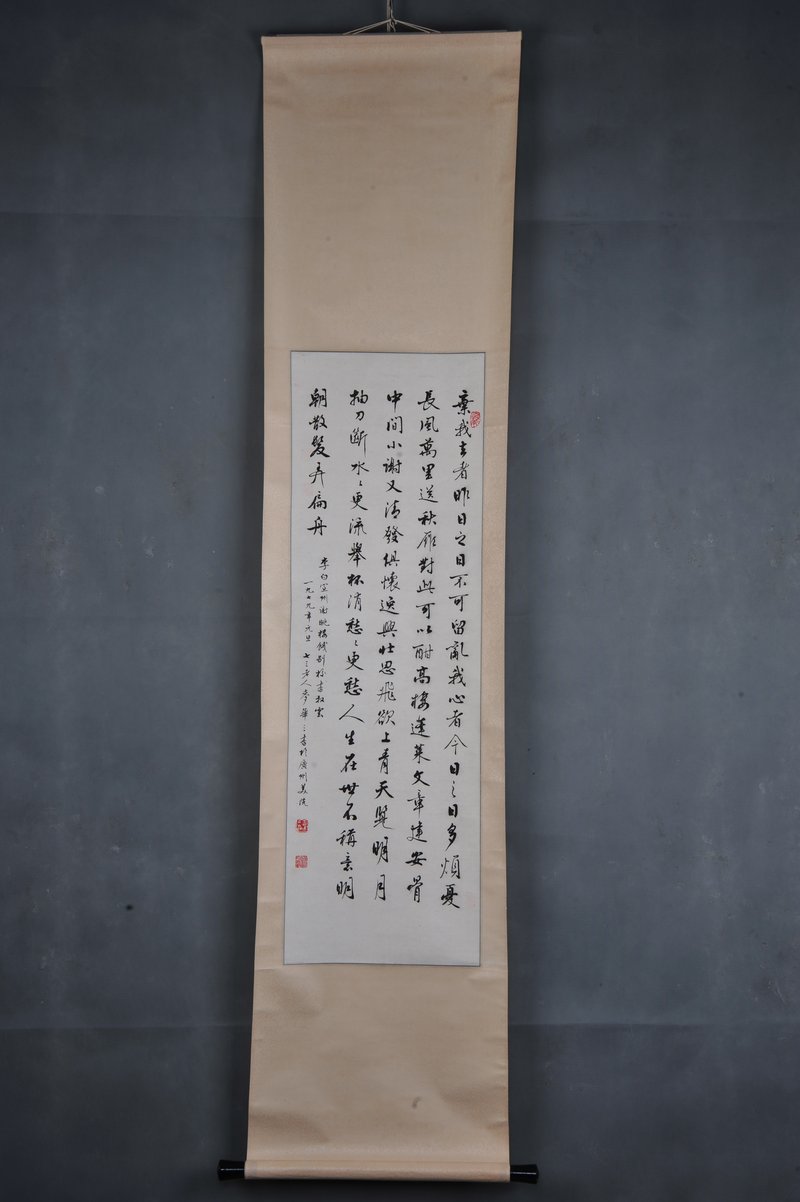 棄我去者昨日之日不可留亂我心者今日之日多煩憂
長風萬里送秋雁對此可以酣高樓蓬萊文章建安骨
中間小謝又清發俱懷逸興壯思飛欲上青天覽明月
抽刀斷水〻更流舉杯消愁〻更愁人生在世不稱意明
朝散髮弄扁舟
李白宣州謝朓樓餞別校書叔雲
一九七九年元旦 七三老人麥華三書於廣州美院